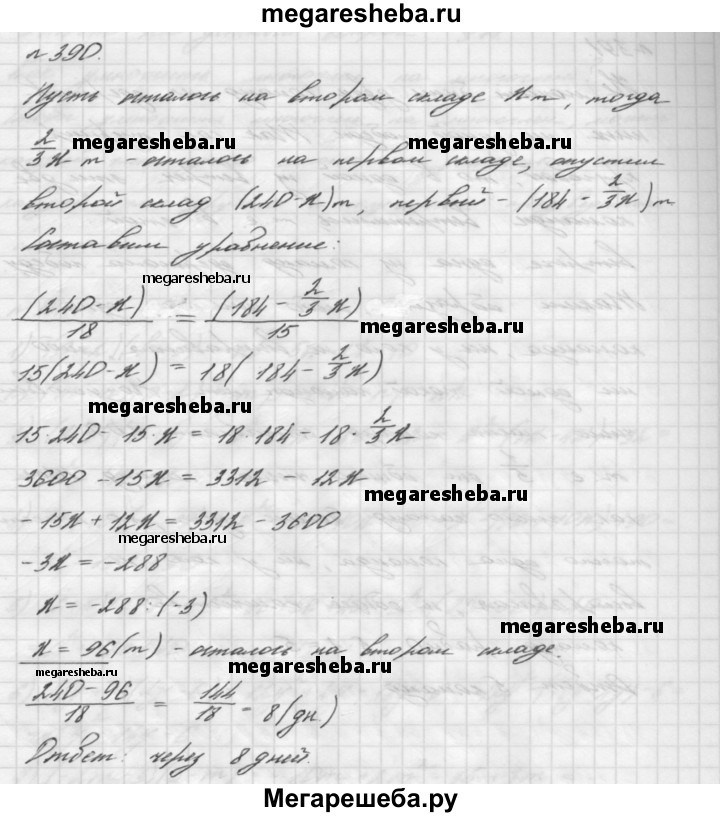 megaresheba.ru
п 390.
Пусть осталось на втором складе х т, тогда
megaresheba.ru megaresheba.ru
2/3 х т - осталось на первом складе, опустил
второй склад (240-х)т, первый - (184 - 2/3 х)т
Составим уравнение:
megaresheba.ru
(240-х)/18 = (184 - 2/3 х)/15
megaresheba.ru
15(240-х) = 18(184- 2/3 х)
megaresheba.ru
15·240- 15·х = 18·184-18· 2/3 х
3600 - 15х = 3312 - 12х
megaresheba.ru
-15х + 12х = 3312 - 3600
megaresheba.ru
-3х = -288
х = -288:(-3)
megaresheba.ru
х = 96(т) - осталось на втором складе.
megaresheba.ru megaresheba.ru
(240-96)/18 = 144/18 = 8(дн.)
Ответ: через 8 дней.
megaresheba.ru
Мегарешеба.ру